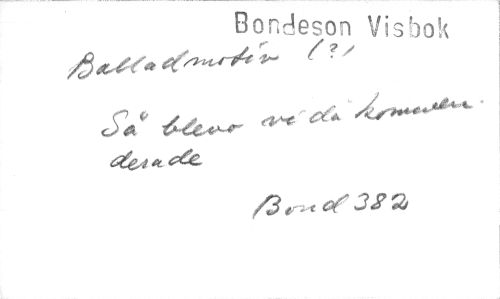 Bondeson Visbok
Balladmotiv (?)
Så blevo vi då kommen-
derade
Bond 382